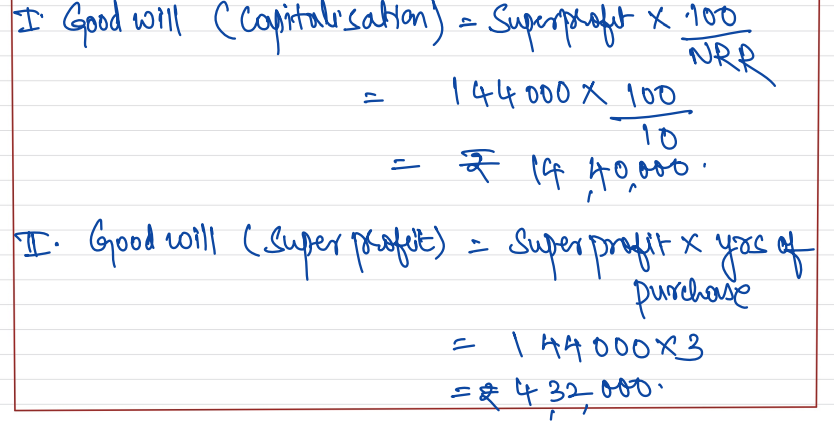 I. Good will (Capitalisation) = Superprofit × 100/NRR
= 144000 × 100/10
= ₹ 14,40,000.
II. Good will (Super profit) = Super profit × yrs of
purchase
= 144000×3
= ₹ 4,32,000.